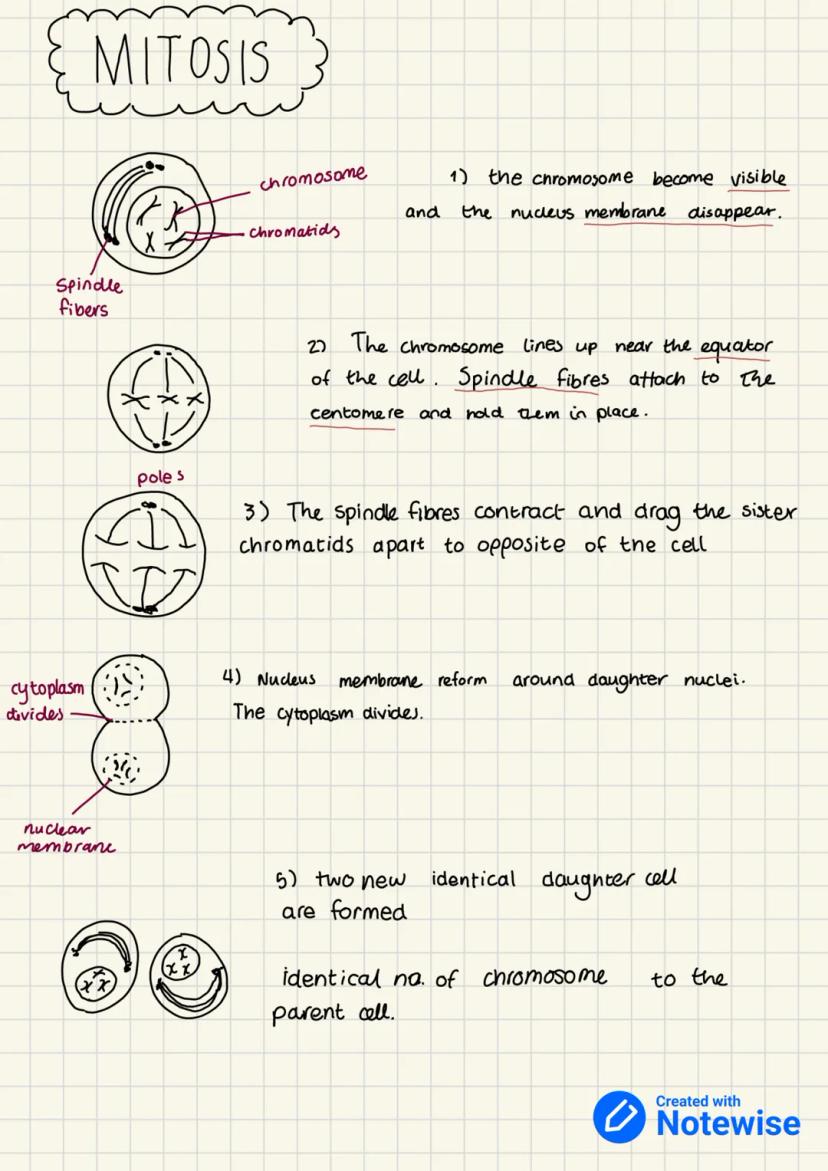 MITOSIS
chromosome
chromatids
Spindle
fibers
1) the chromosome become visible
and the nucleus membrane disappear.
2) The chromosome lines up near the equator
of the cell. Spindle fibres attach to the
centomere and hold them in place.
poles
3) The spindle fibres contract and drag the sister
chromatids apart to opposite of the cell
4) Nucleus membrane reform around daughter nuclei.
The cytoplasm divides.
cytoplasm
divides
nuclear
membrane
5) two new identical daughter cell
are formed
identical no. of chromosome to the
parent cell.
Created with
Notewise